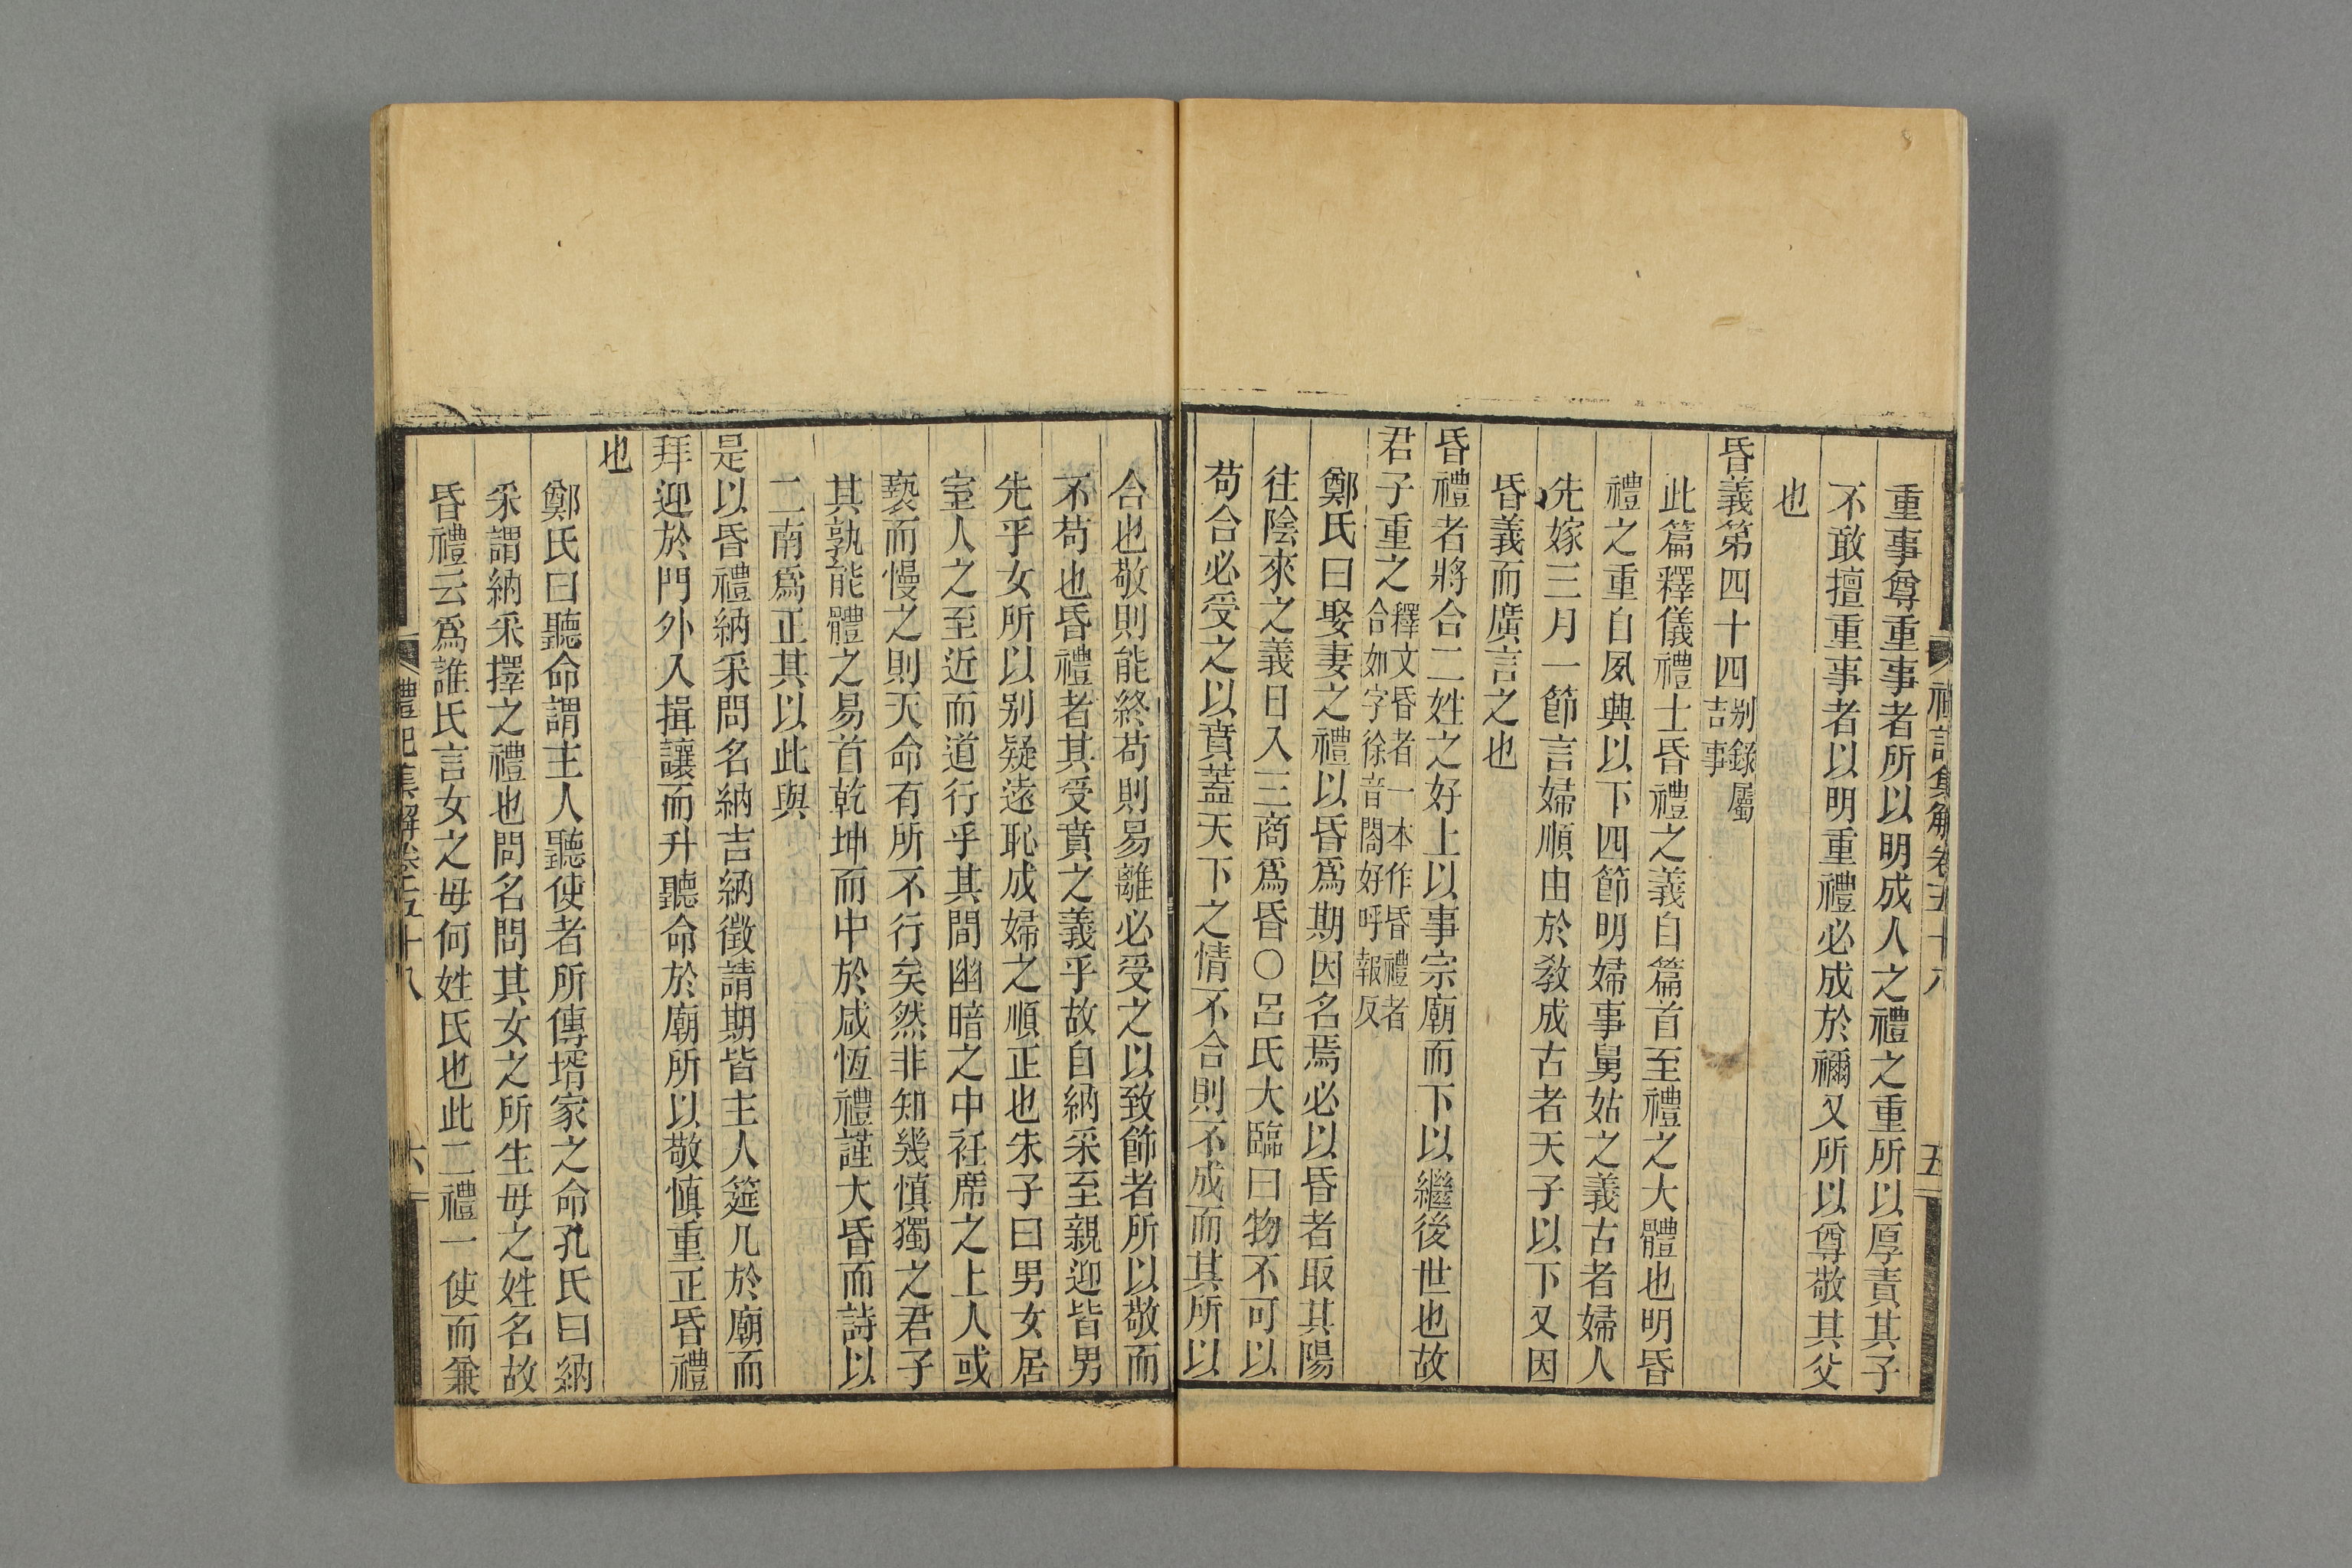 禮記集解卷五十八 五
重事尊重事者所以明成人之禮之重所以厚責其子
不敢擅重事者以明重禮必成於禰又所以尊敬其父
也
昏義第四十四别錄屬吉事
此篇釋儀禮士昏禮之義自篇首至禮之大體也明昏
禮之重自夙興以下四節明婦事舅姑之義古者婦人
先嫁三月一節言婦順由於敎成古者天子以下又因
昏義而廣言之也
昏禮者將合二姓之好上以事宗廟而下以繼後世也故
君子重之釋文昏者一本作昏禮者合如字徐音閤好呼報反
鄭氏曰娶妻之禮以昏爲期因名焉必以昏者取其陽
往陰來之義日入三商爲昏○呂氏大臨曰物不可以
苟合必受之以賁蓋天下之情不合則不成而其所以
合也敬則能終苟則易離必受之以致飾者所以敬而
不苟也昏禮者其受賁之義乎故自納采至親迎皆男
先乎女所以别疑遠恥成婦之順正也朱子曰男女居
室人之至近而道行乎其間幽暗之中袵席之上人或
褻而慢之則天命有所不行矣然非知幾慎獨之君子
其孰能體之易首乾坤而中於咸恆禮謹大昏而詩以
二南爲正其以此與
是以昏禮納采問名納吉納徵請期皆主人筵几於廟而
拜迎於門外入揖讓而升聽命於廟所以敬慎重正昏禮
也
鄭氏曰聽命謂主人聽使者所傳壻家之命孔氏曰納
采謂納采擇之禮也問名問其女之所生母之姓名故
昏禮云爲誰氏言女之母何姓氏也此二禮一使而兼
禮記集解卷五十八 六